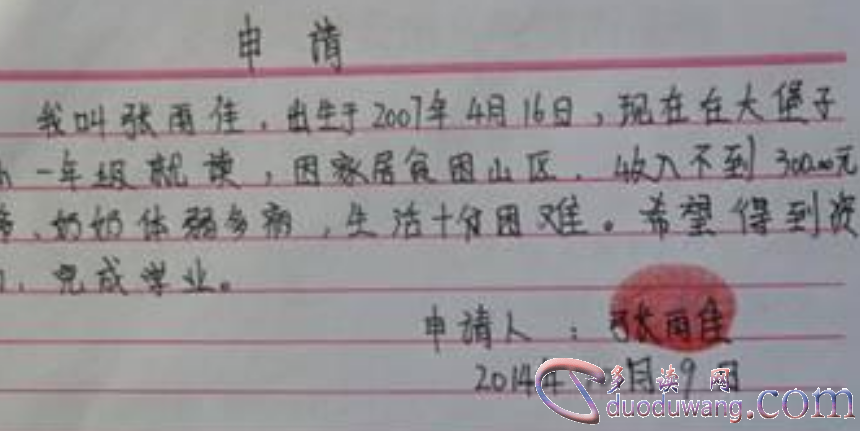 申请
我叫张雨佳，出生于2007年4月16日，现在在大堡子
一年级就读，因家居贫困山区，收入不到300.00元
、奶奶体弱多病，生活十分困难。希望得到资
，完成学业。
申请人：张雨佳
2014年 月9日
多读网
duoduwang.com